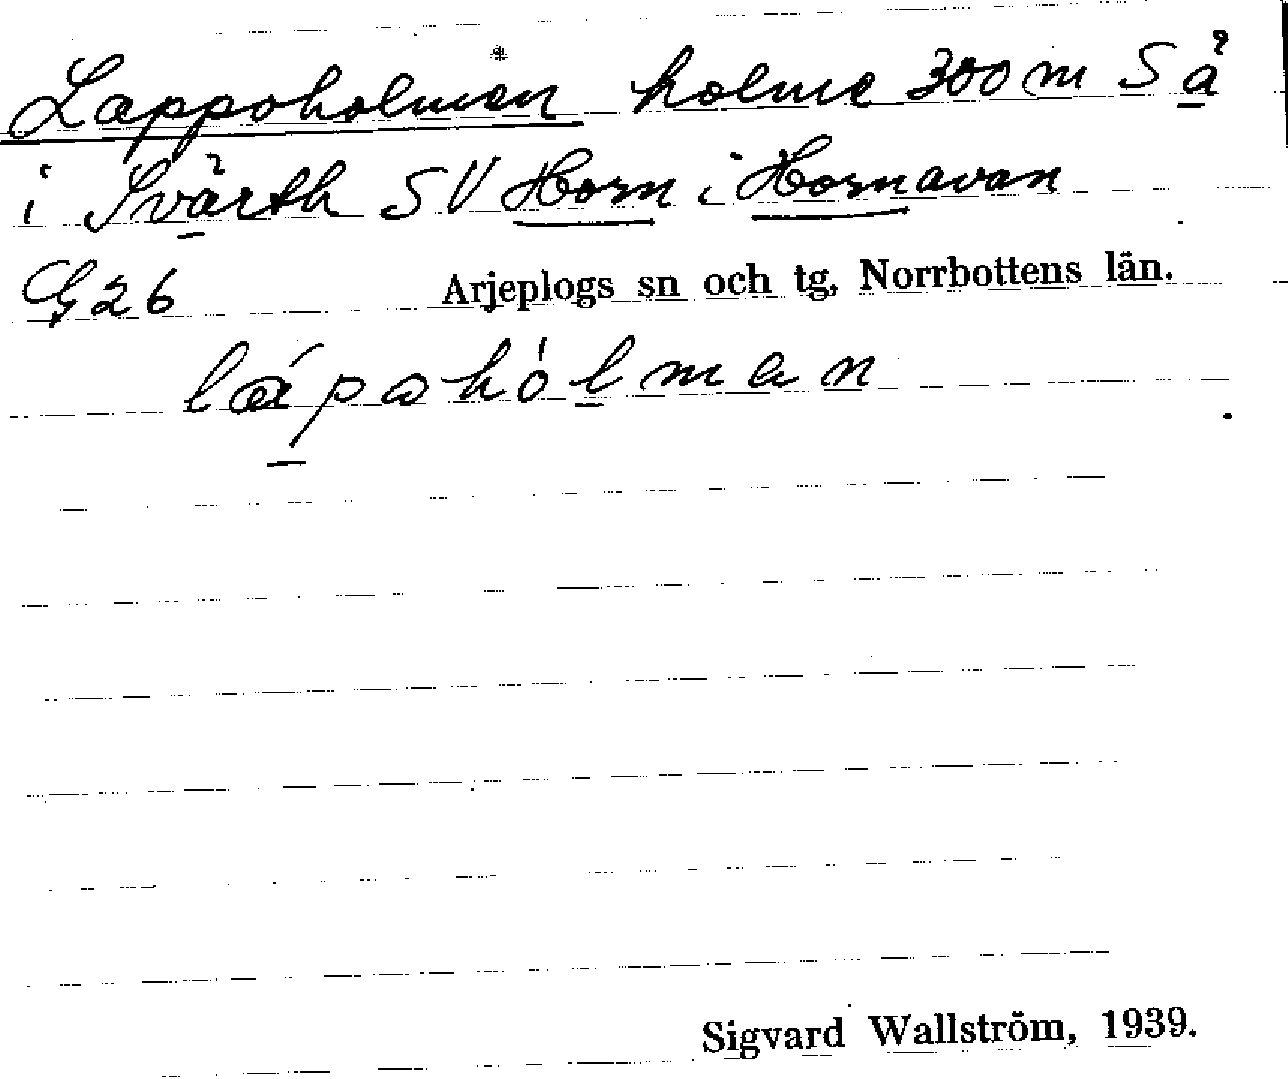 Lappoholmen holme 300 m S å
i Svärth SV Horn i Hornavan
G26 Arjeplogs sn och tg, Norrbottens län.
lápahólman
Sigvard Wallström, 1939.